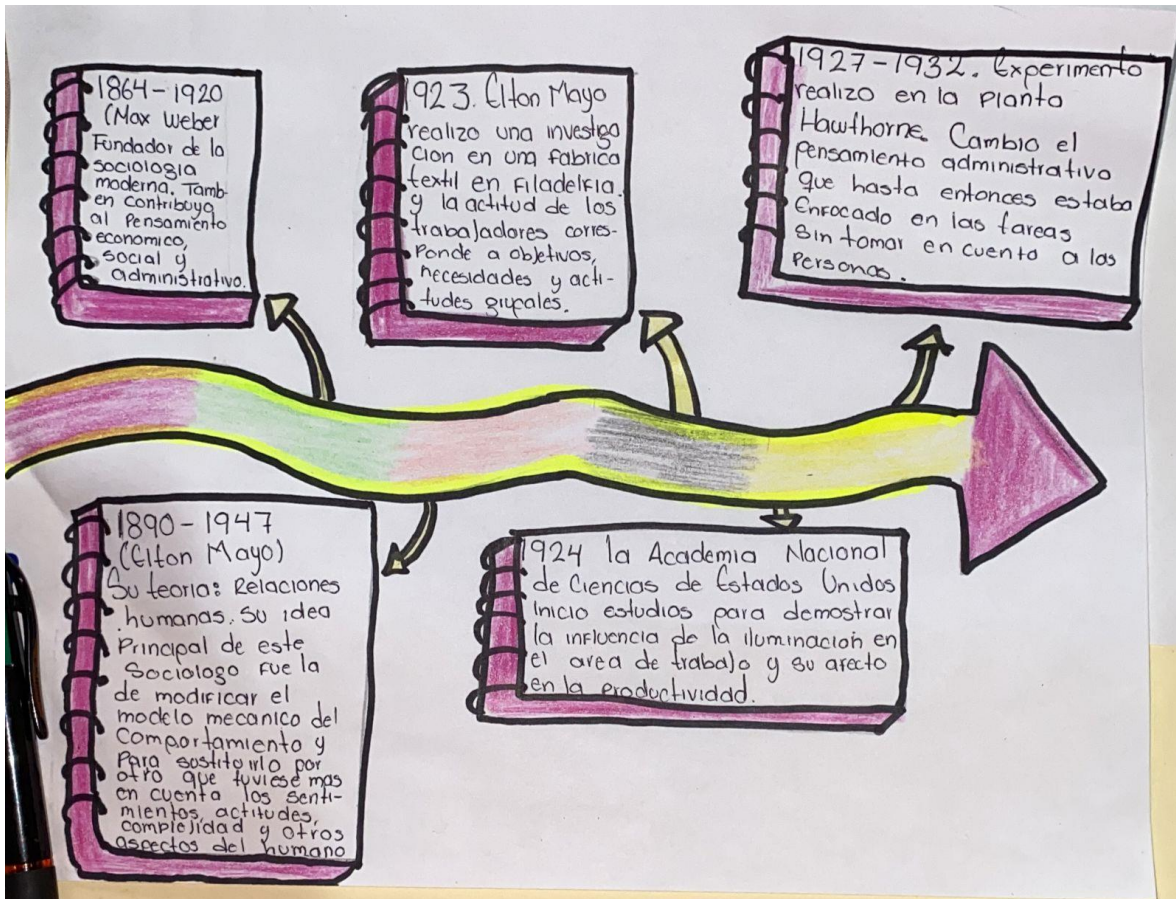 1864-1920
(Max Weber
Fundador de la
sociologia
moderna. Tamb-
en contribuyo
al Pensamiento
economico,
social y
administrativo.
1923. Elton Mayo
realizo una investiga
cion en una fabrica
textil en Filadelfia.
y la actitud de los
trabajadores corres-
ponde a objetivos,
necesidades y acti-
tudes grupales.
1927-1932. Experimento
realizo en la planta
Hawthorne. Cambio el
pensamiento administrativo
que hasta entonces estaba
Enfocado en las tareas
Sin tomar en cuenta a las
Personas.
1890-1947
(Elton Mayo)
Su teoria: Relaciones
humanas. Su idea
Principal de este
Sociologo fue la
de modificar el
modelo mecanico del
Comportamiento y
Para sostituirlo por
otro que tuviese mas
en cuenta los senti-
mientos, actitudes,
complejidad y otros
aspectos del humano
1924 la Academia Nacional
de Ciencias de Estados Unidos
Inicio estudios para demostrar
la influencia de la iluminacion en
el area de trabajo y su afecto
en la productividad.